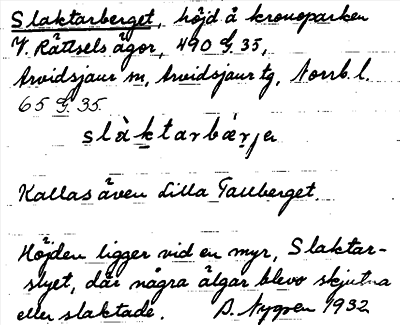 Slaktarberget, höjd å kronoparken
V. Rättsels ägor, 490 G. 35,
Arvidsjaur sn, Arvidsjaur tg, Norrb. l.
65 G 35
slàktarbærjen
Kallas även Lilla Tallberget.
Höjden ligger vid en myr, Slaktar-
slyet, där några älgar blevo skjutna
eller slaktade. D. Nygren 1932